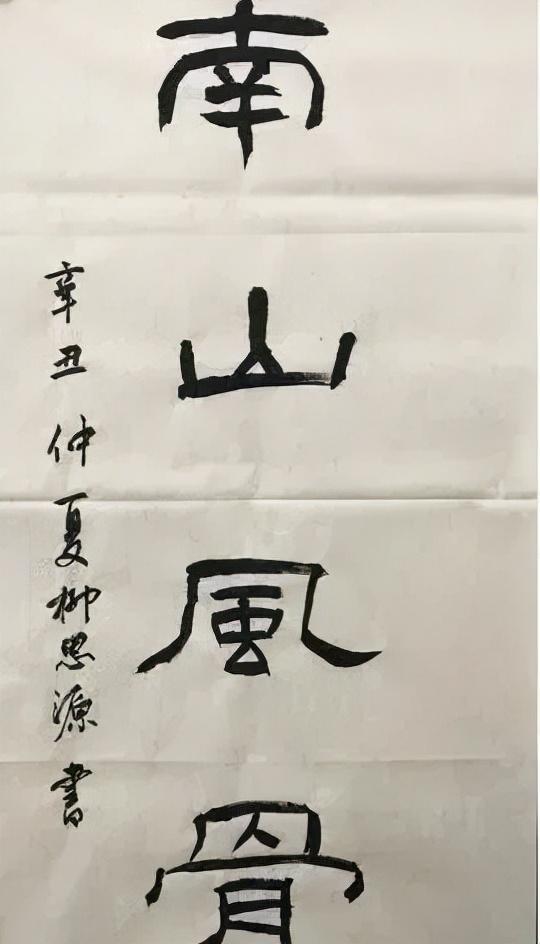 南山風骨
辛丑仲夏柳思源書